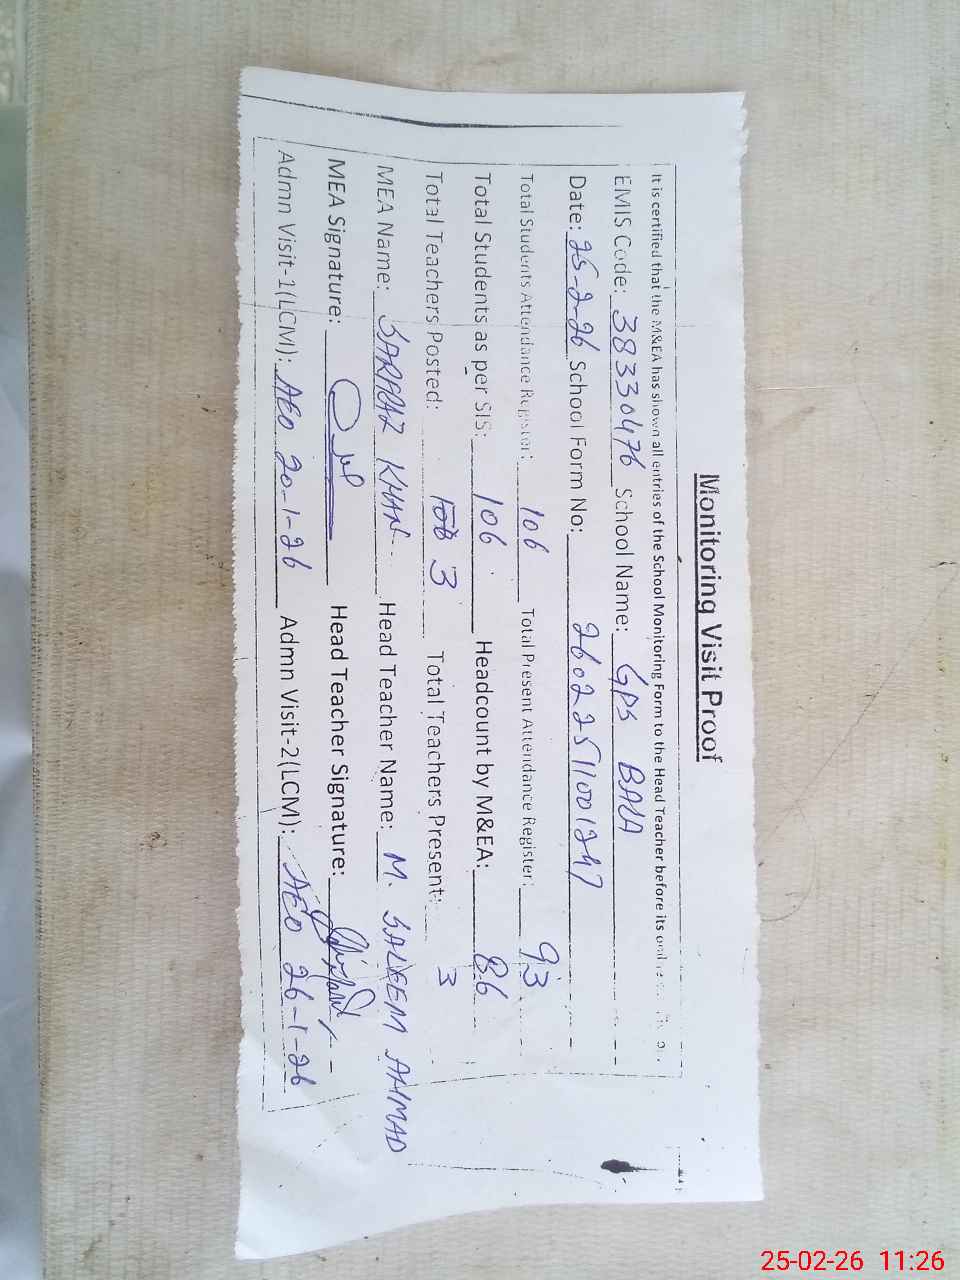 Monitoring Visit Proof
It is certified that the M&EA has shown all entries of the School Monitoring Form to the Head Teacher before its
EMIS Code: 38330476 School Name: GPS BALA
Date: 25-2-26 School Form No: 26022511001247
Total Students Attendance Register: 106 Total Present Attendance Register: 93
Total Students as per SIS: 106 Headcount by M&EA: 86
Total Teachers Posted: 3 Total Teachers Present: 3
MEA Name: SARFRAZ KHAN Head Teacher Name: M. SALEEM AHMAD
MEA Signature: Head Teacher Signature:
Admn Visit-1(LCM): AEO 20-1-26 Admn Visit-2(LCM): AEO 26-1-26
25-02-26 11:26